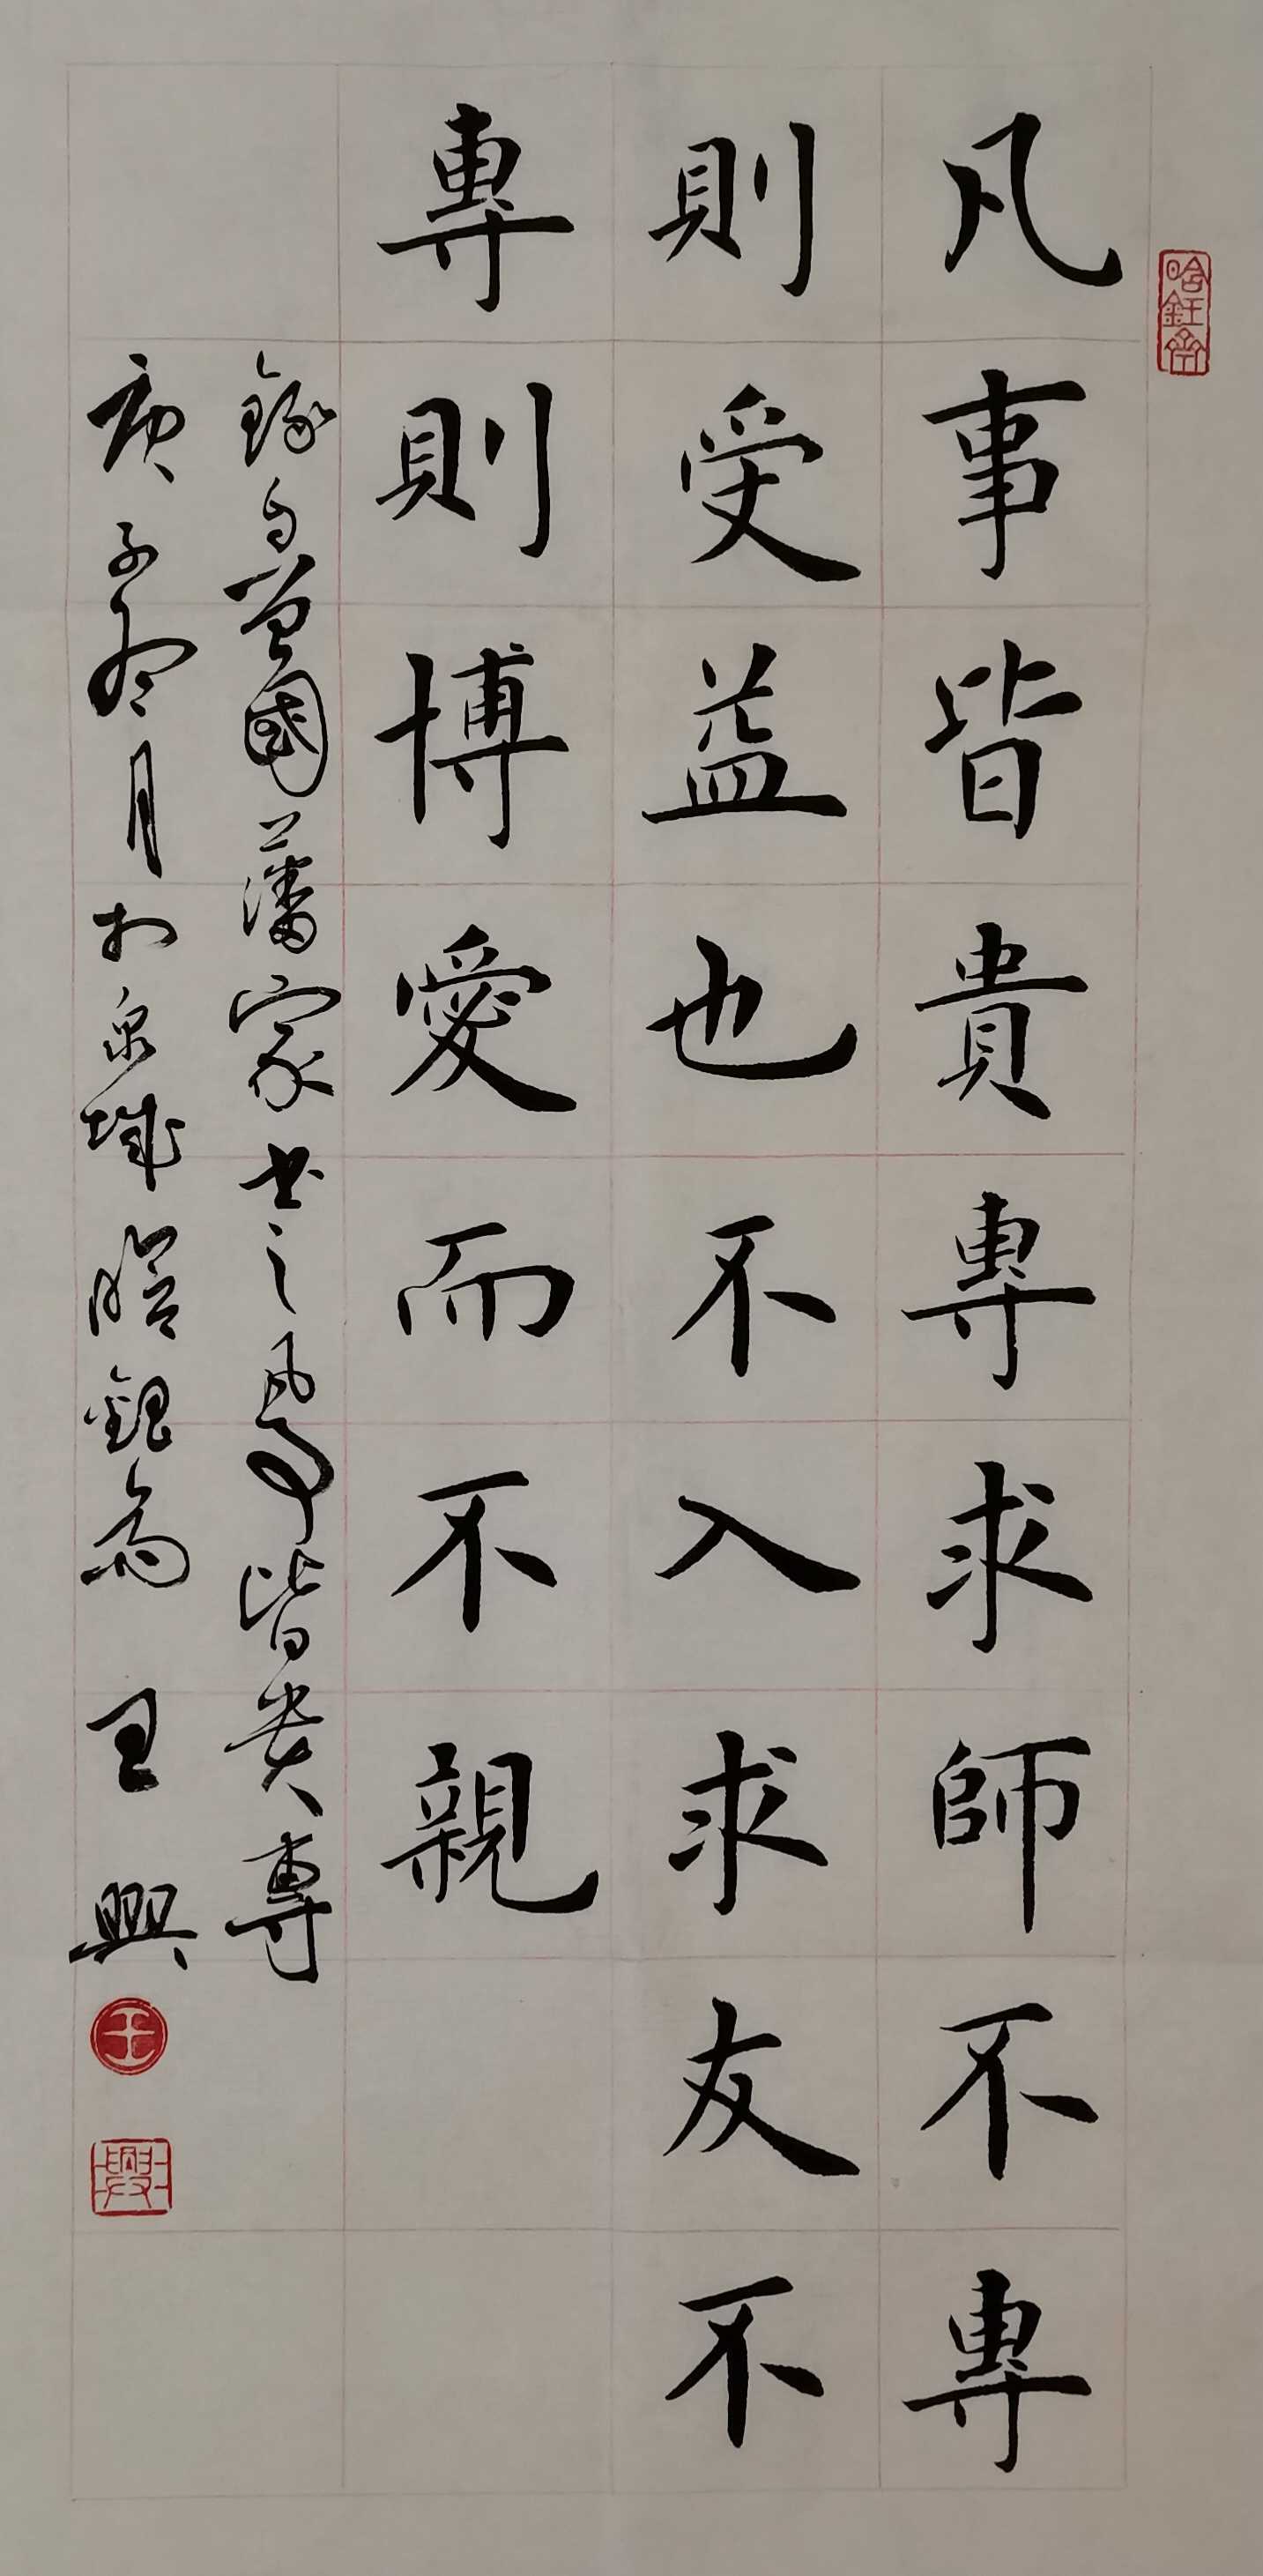 晗鈺齋
凡事皆貴專求師不專
則受益也不入求友不
專則博愛而不親
錄自曾國藩家書之凡事皆貴專
庚子月於泉城晗鈺齋 王興
王
興